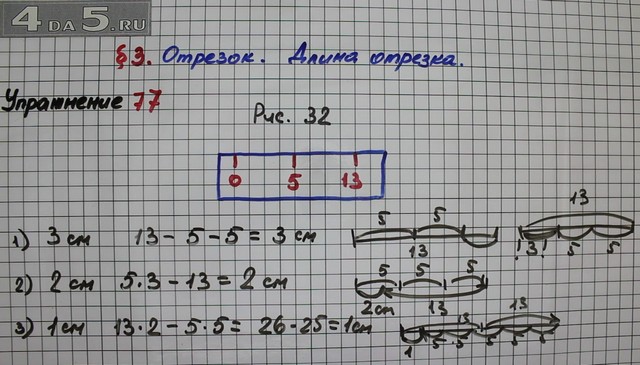 4DA5.RU
§3. Отрезок. Длина отрезка.
Упражнение 77
Рис. 32
0 5 13
1) 3 см 13 - 5 - 5 = 3 см
5 5 13
13 !3! 5 5
2) 2 см 5·3 - 13 = 2 см
5 5 5
2см 13
3) 1 см 13·2 - 5·5 = 26 - 25 = 1см
13 13
1 5 5 5 5 5